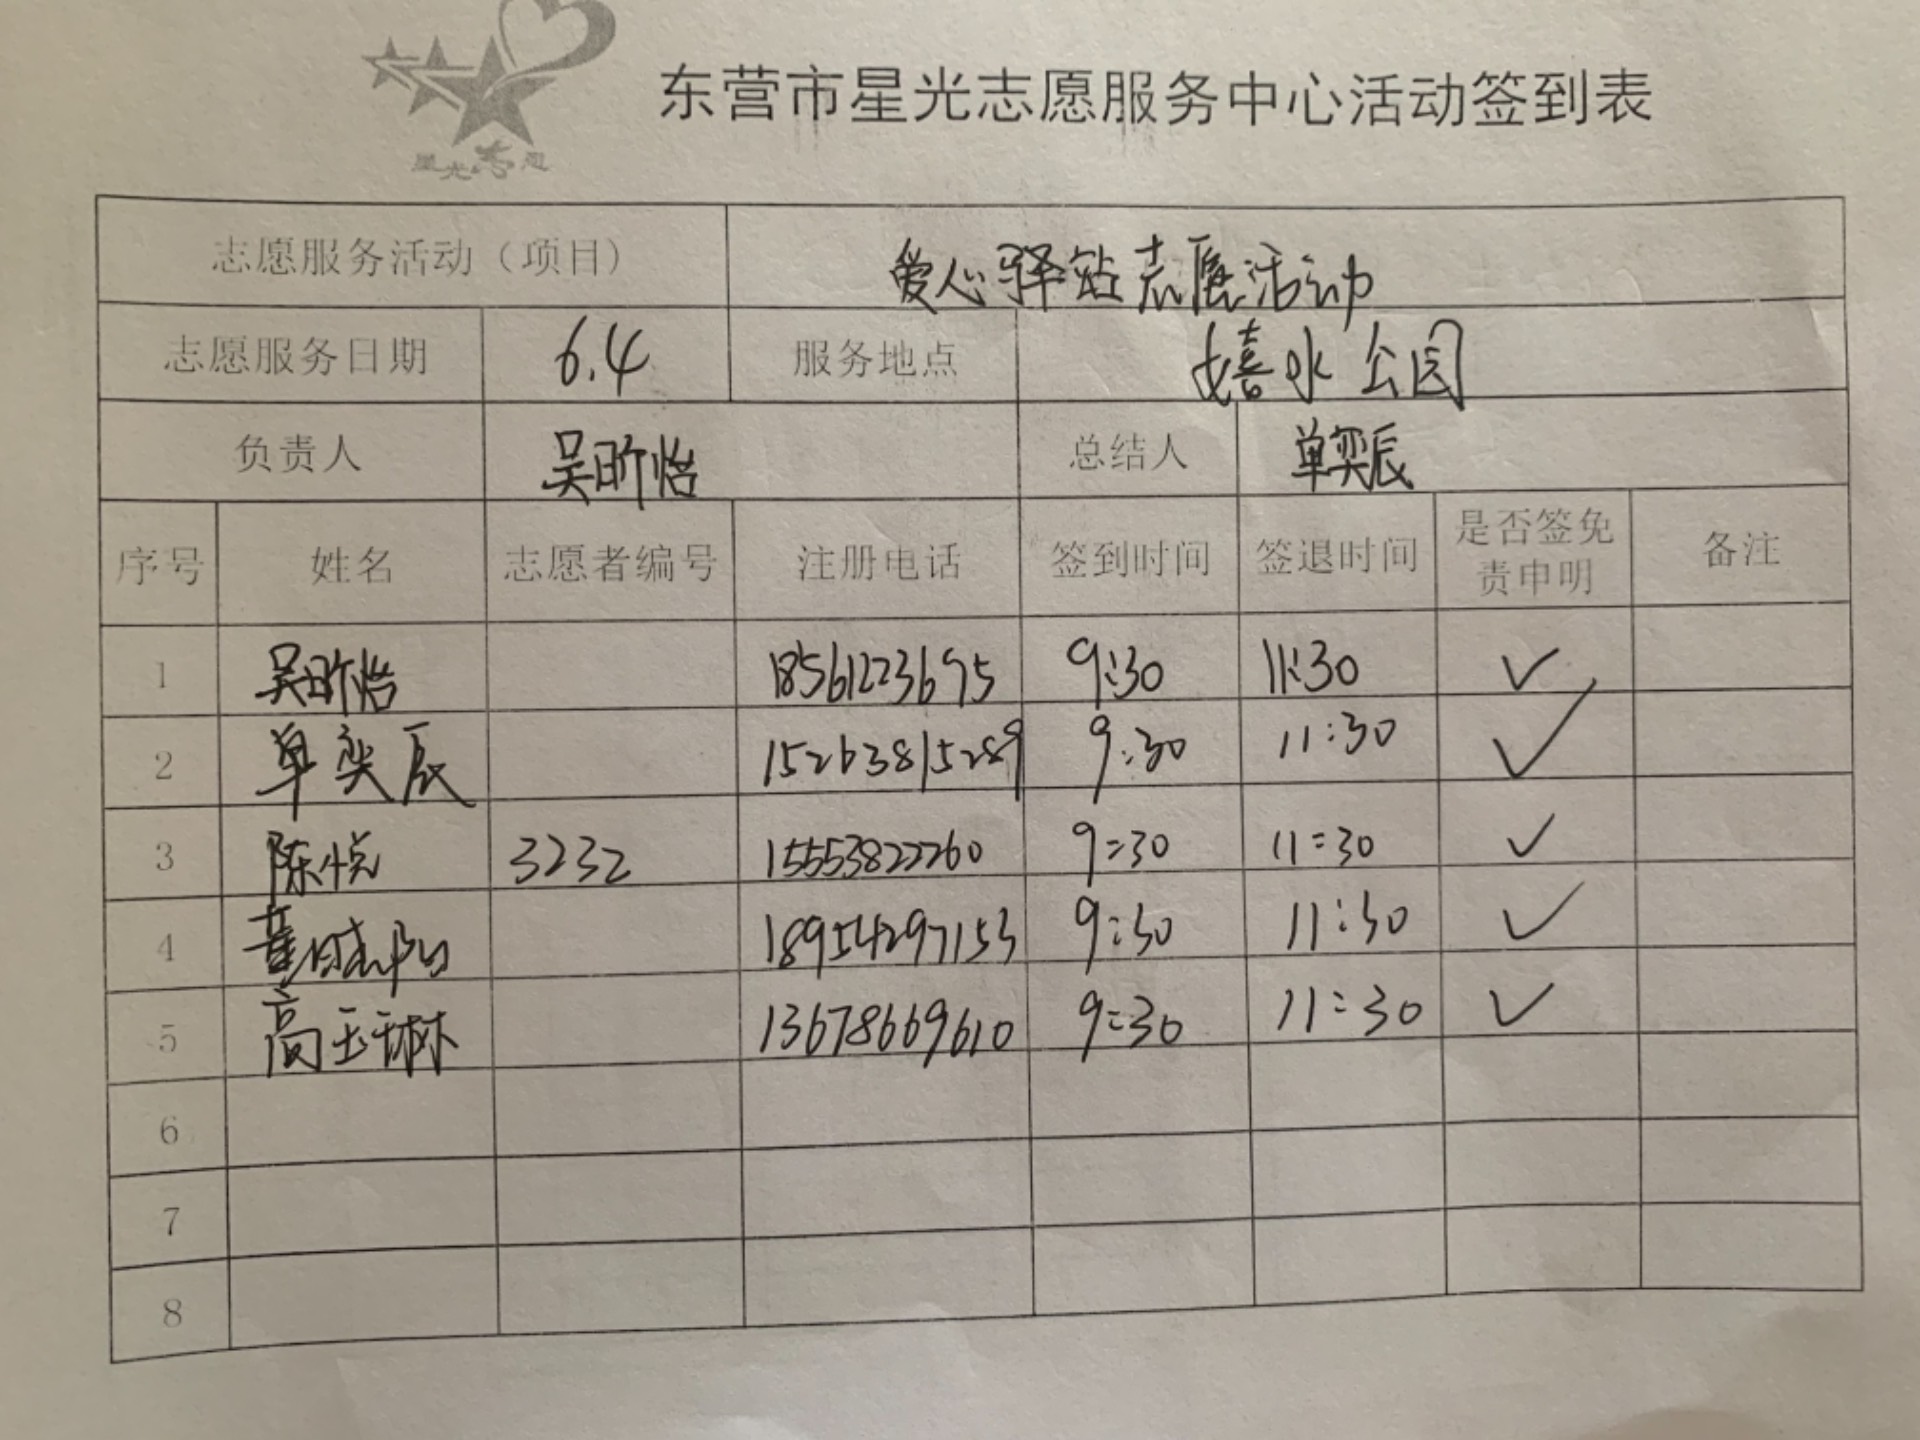 星光志愿
东营市星光志愿服务中心活动签到表
志愿服务活动（项目） 爱心驿站志愿活动
志愿服务日期 6.4 服务地点 嬉水公园
负责人 吴昕怡 总结人 单奕辰
序号 姓名 志愿者编号 注册电话 签到时间 签退时间 是否签免责申明 备注
1 吴昕怡 18561223695 9:30 11:30 ✓
2 单奕辰 15263815289 9:30 11:30 ✓
3 陈悦 3232 15553822260 9:30 11:30 ✓
4 18954297153 9:30 11:30 ✓
5 高玉琳 13678669610 9:30 11:30 ✓
6
7
8